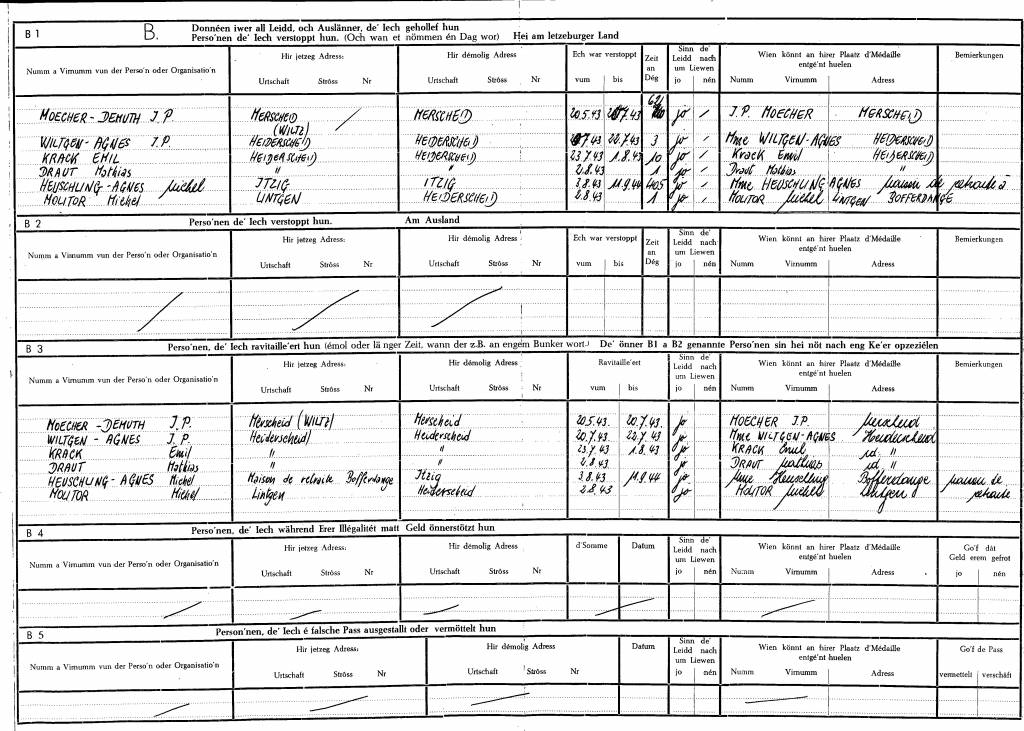 B 1 B. Donnéen iwer all Leidd, och Auslänner, de' Iech gehollef hun
Perso'nen de' Iech verstoppt hun. (Och wan et nömmen én Dag wor) Hei am letzeburger Land
Numm a Virnumm vun der Perso'n oder Organisatio'n Hir jetzeg Adress: Hir démolig Adress Ech war verstoppt Zeit an Dég Sinn de' Leidd nach um Liewen Wien könnt an hirer Plaatz d'Médaille entgé'nt huelen Bemierkungen
Urtschaft Ströss Nr Urtschaft Ströss Nr vum bis jo nén Numm Virnumm Adress
MOECHER-DEMUTH J.P. MERSCHEID (WILTZ) MERSCHEID 20.5.43 43 62 jo J.P. MOECHER MERSCHEID
WILTGEN-AGNES J.P. HEIDERSCHEID HEIDERSCHEID 7.43 22.7.43 3 jo Mme WILTGEN-AGNES HEIDERSCHEID
KRACK EMIL HEIDERSCHEID HEIDERSCHEID 23.7.43 1.8.43 10 jo Krack Emil HEIDERSCHEID
DRAUT Mathias " " 2.8.43 1 jo Draut Mathias "
HEUSCHLING-AGNES Michel ITZIG ITZIG 3.8.43 11.9.44 405 jo Mme HEUSCHLING-AGNES maison de retraite à
MOLITOR Michel LINTGEN HEIDERSCHEID 2.8.43 1 jo MOLITOR Michel LINTGEN BOFFERDANGE
B 2 Perso'nen de' Iech verstoppt hun. Am Ausland
Numm a Virnumm vun der Perso'n oder Organisatio'n Hir jetzeg Adress: Hir démolig Adress Ech war verstoppt Zeit an Dég Sinn de' Leidd nach um Liewen Wien könnt an hirer Plaatz d'Médaille entgé'nt huelen Bemierkungen
Urtschaft Ströss Nr Urtschaft Ströss Nr vum bis jo nén Numm Virnumm Adress
B 3 Perso'nen, de' Iech ravitaille'ert hun (émol oder lä nger Zeit, wann der z.B. an engem Bunker wort.) De' önner B1 a B2 genannte Perso'nen sin hei nöt nach eng Ke'er opzeziélen
Numm a Virnumm vun der Perso'n oder Organisatio'n Hir jetzeg Adress: Hir démolig Adress Ravitaille'ert Sinn de' Leidd nach um Liewen Wien könnt an hirer Plaatz d'Médaille entgé'nt huelen Bemierkungen
Urtschaft Ströss Nr Urtschaft Ströss Nr vum bis jo nén Numm Virnumm Adress
MOECHER-DEMUTH J.P. Merscheid (WILTZ) Merscheid 20.5.43. 20.7.43. jo MOECHER J.P. Merscheid
WILTGEN-AGNES J.P. Heiderscheid Heiderscheid 20.7.43 22.7.43 jo Mme WILTGEN-AGNES Heiderscheid
KRACK Emil " " 23.7.43 1.8.43 jo KRACK Emil id. "
DRAUT Mathias " " 2.8.43. jo DRAUT Mathias id. "
HEUSCHLING-AGNES Michel Maison de retraite Bofferdange Itzig 3.8.43 11.9.44 jo Mme Heuschling Bofferdange maison de retraite
MOLITOR Michel Lintgen Heiderscheid 2.8.43 jo MOLITOR Michel Lintgen
B 4 Perso'nen, de' Iech während Erer Illégalitét matt Geld önnerstötzt hun
Numm a Virnumm vun der Perso'n oder Organisatio'n Hir jetzeg Adress: Hir démolig Adress d'Somme Datum Sinn de' Leidd nach um Liewen Wien könnt an hirer Plaatz d'Médaille entgé'nt huelen Go'f dât Geld erem gefrot
Urtschaft Ströss Nr Urtschaft Ströss Nr jo nén Numm Virnumm Adress jo nén
B 5 Person'nen, de' Iech é falsche Pass ausgestallt oder vermöttelt hun
Numm a Virnumm vun der Perso'n oder Organisatio'n Hir jetzeg Adress: Hir démolig Adress Datum Sinn de' Leidd nach um Liewen Wien könnt an hirer Plaatz d'Médaille entgé'nt huelen Go'f de Pass
Urtschaft Ströss Nr Urtschaft Ströss Nr jo nén Numm Virnumm Adress vermettelt verschâft